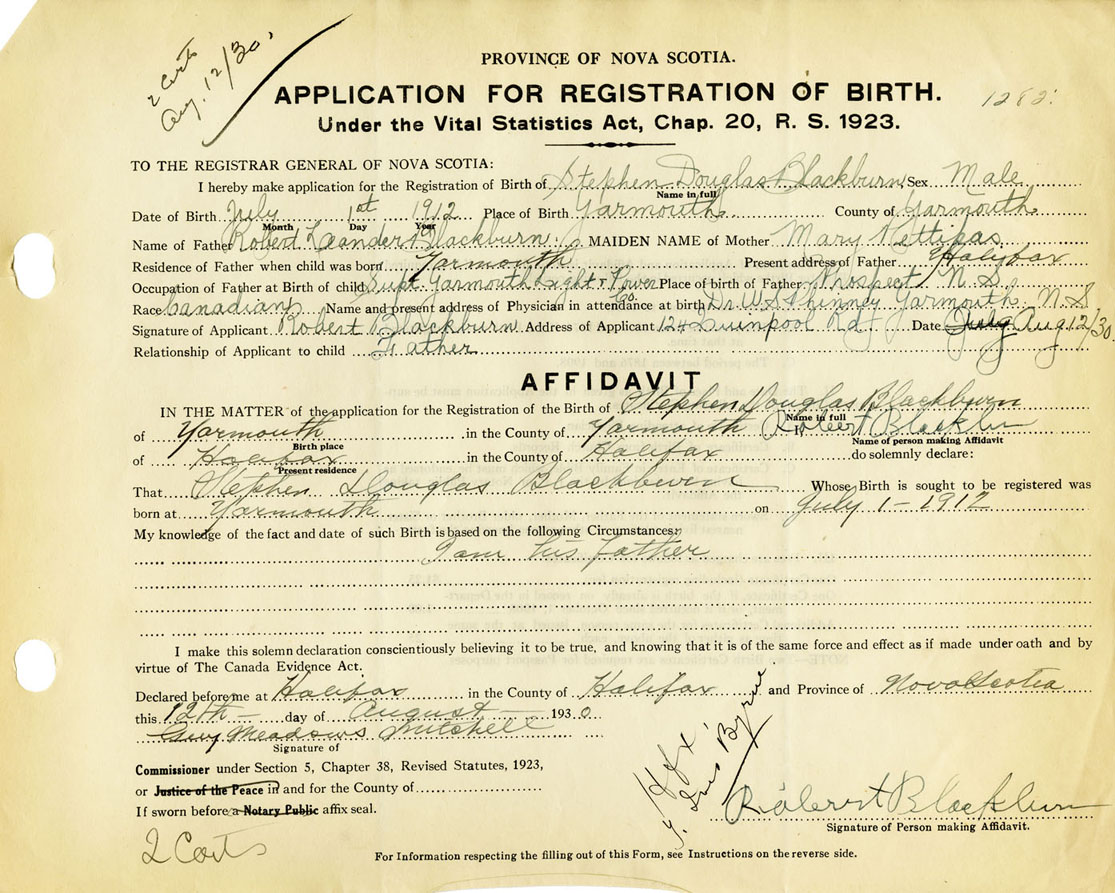 2 Certs
Aug. 12/30.
PROVINCE OF NOVA SCOTIA.
APPLICATION FOR REGISTRATION OF BIRTH.
1282
Under the Vital Statistics Act, Chap. 20, R. S. 1923.
TO THE REGISTRAR GENERAL OF NOVA SCOTIA:
I hereby make application for the Registration of Birth of Stephen Douglas Blackburn Sex Male
Name in full
Date of Birth July 1st 1912 Place of Birth Yarmouth County of Yarmouth
Month Day Year
Name of Father Robert Leander Blackburn MAIDEN NAME of Mother Mary Pettipas
Residence of Father when child was born Yarmouth Present address of Father Halifax
Occupation of Father at Birth of child Supt. Yarmouth Light & Power Co. Place of birth of Father Prospect N S
Race Canadian Name and present address of Physician in attendance at birth Dr. W S Phinney Yarmouth N S
Signature of Applicant Robert Blackburn Address of Applicant 124 Rd Date July Aug 12/30
Relationship of Applicant to child Father
AFFIDAVIT
IN THE MATTER of the application for the Registration of the Birth of Stephen Douglas Blackburn
Name in full
of Yarmouth in the County of Yarmouth I, Robert Blackburn
Birth place Name of person making Affidavit
of Halifax in the County of Halifax do solemnly declare:
Present residence
That Stephen Douglas Blackburn Whose Birth is sought to be registered was
born at Yarmouth on July 1 - 1912
My knowledge of the fact and date of such Birth is based on the following Circumstances:
I am his father
I make this solemn declaration conscientiously believing it to be true, and knowing that it is of the same force and effect as if made under oath and by
virtue of The Canada Evidence Act.
Declared before me at Halifax in the County of Halifax and Province of Nova Scotia
this 12th - day of August - 1930
Guy Meadows Mitchell
Signature of
Commissioner under Section 5, Chapter 38, Revised Statutes, 1923,
or Justice of the Peace in and for the County of
If sworn before a Notary Public affix seal.
Hfx
Byrne
Robert Blackburn
Signature of Person making Affidavit.
2 Certs
For Information respecting the filling out of this Form, see Instructions on the reverse side.